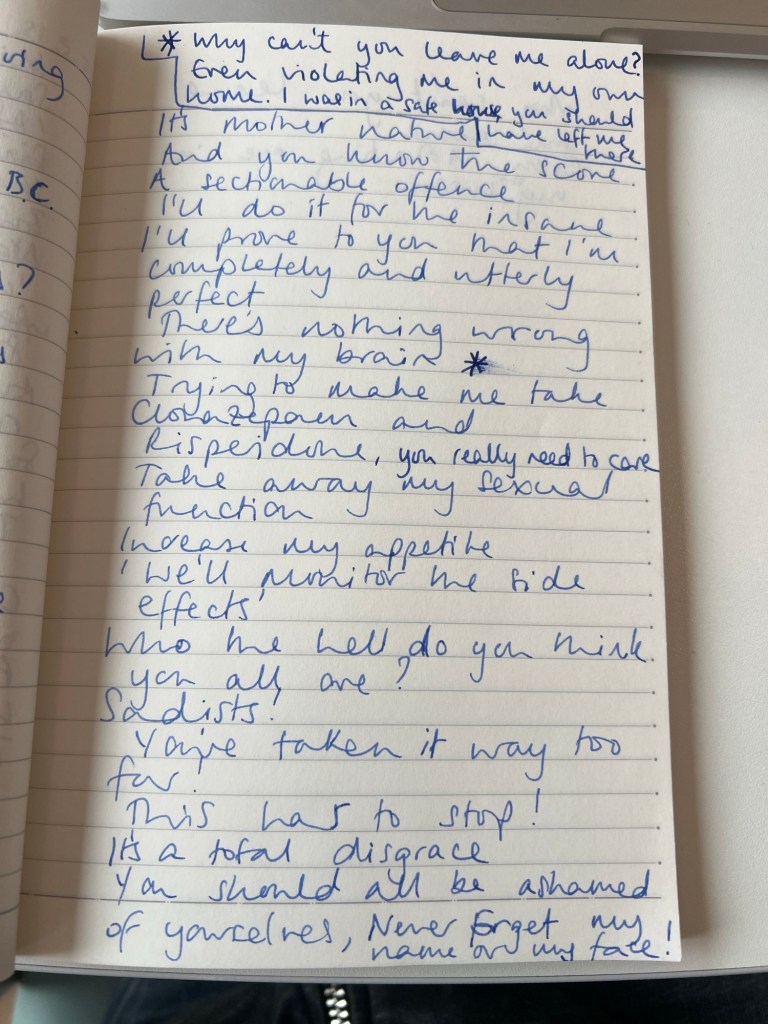 ving
B.C.
?
* Why can't you leave me alone?
Even violating me in my own
home. I was in a safe house you should
have left me
there
It's mother nature
And you know the score.
A sectionable offence
I'll do it for the insane
I'll prove to you that I'm
completely and utterly
perfect
There's nothing wrong
with my brain *
Trying to make me take
and
Risperidone, you really need to care
Take away my sexual
function
Increase my appetite
'We'll monitor the side
effects'
Who the hell do you think
you all are?
Sadists!
You've taken it way too
far!
This has to stop!
It's a total disgrace
You should all be ashamed
of yourselves, Never forget my
name or my face!